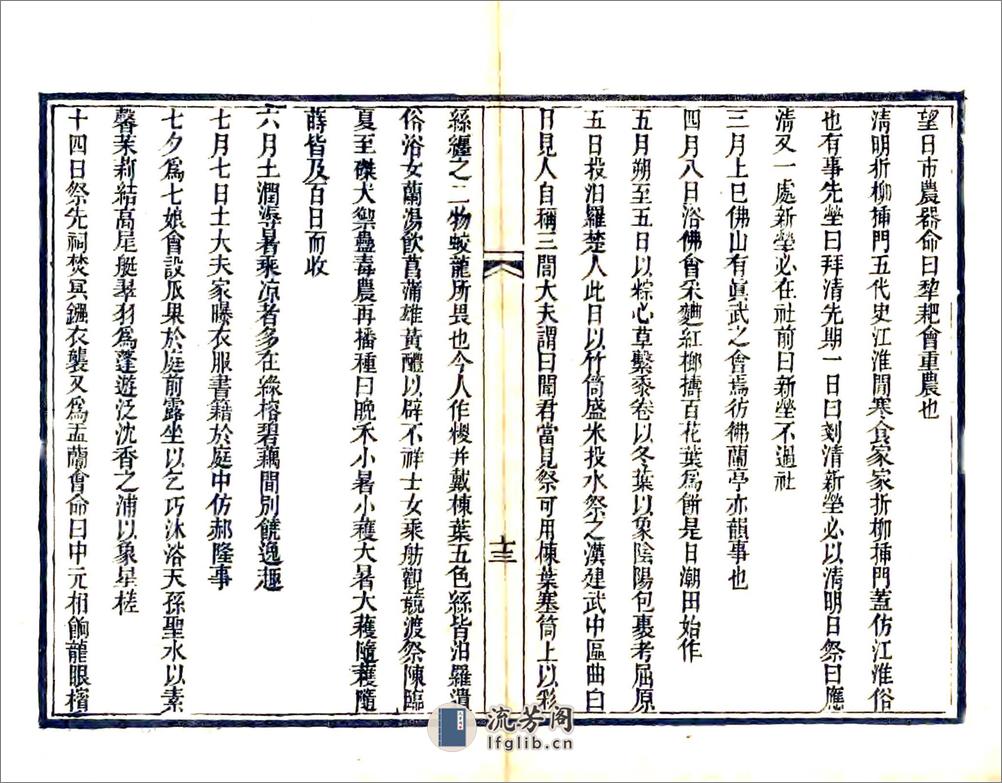 望日市農器命曰犂耙會重農也
清明折柳插門五代史江淮間寒食家家折柳插門蓋仿江淮俗
也有事先塋曰拜清先期一日曰刻清新塋必以清明日祭曰應
清又一處新塋必在社前曰新塋不過社
三月上巳佛山有眞武之會焉彷彿蘭亭亦韻事也
四月八日浴佛會采麵紅榔擣百花葉爲餅是日潮田始作
五月朔至五日以粽心草繫黍卷以冬葉以象陰陽包裹考屈原
五日投汨羅楚人此日以竹筒盛米投水祭之漢建武中區曲白
日見人自稱三閭大夫謂曰聞君當見祭可用楝葉塞筒上以彩
十三
絲纏之二物蛟龍所畏也今人作糭并戴楝葉五色絲皆汨羅遺
俗浴女蘭湯飲菖蒲雄黃醴以辟不祥士女乘舫觀競渡祭陳臨
夏至磔犬禦蠱毒農再播種曰晚禾小暑小穫大暑大穫隨穫隨
蒔皆及百日而收
六月土潤溽暑乘凉者多在綠榕碧藕間別饒逸趣
七月七日士大夫家曝衣服書籍於庭中仿郝隆事
七夕爲七娘會設瓜果於庭前露坐以乞巧沐浴天孫聖水以素
馨茉莉結高尾艇翠羽爲蓬遊泛沈香之浦以象星槎
十四日祭先祠焚冥鏹衣襲又爲盂蘭會命曰中元相餉龍眼檳
流芳阁
lfglib.cn